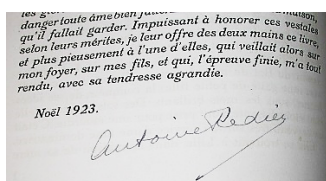 danger toute âme bien
qu'il fallait garder. Impuissant à honorer ces vestales
selon leurs mérites, je leur offre des deux mains ce livre,
et plus pieusement à l'une d'elles, qui veillait alors sur
mon foyer, sur mes fils, et qui, l'épreuve finie, m'a tout
rendu, avec sa tendresse agrandie.
Noël 1923.
Antoine Redier